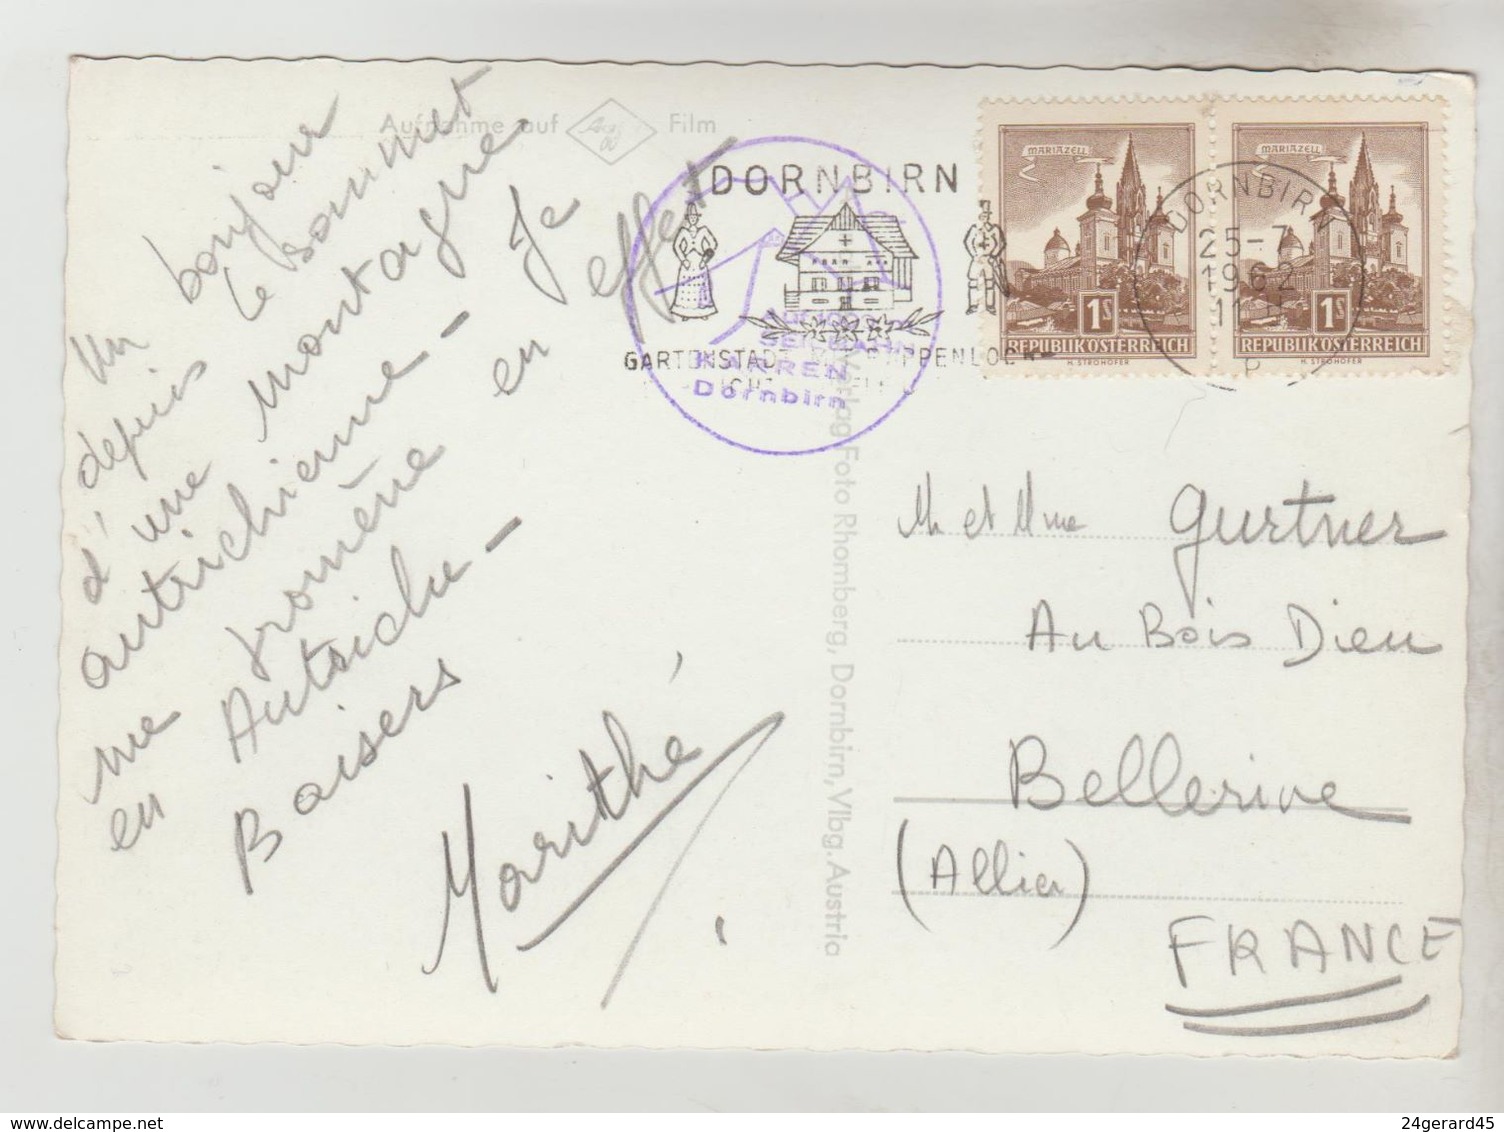 Un bonjour
depuis le sommet
d'une montagne
autrichienne - Je
me promène en effet
en Autriche -
Baisers
Marithé
Aufnahme auf Agfa Film
DORNBIRN
GARTENSTADT
SEILBAHN
KARREN
Dornbirn
Verlag Foto Rhomberg, Dornbirn, Vlbg. Austria
MARIAZELL
1S
REPUBLIK ÖSTERREICH
H. STROHOFER
MARIAZELL
1S
REPUBLIK ÖSTERREICH
H. STROHOFER
DORNBIRN
25-7
1962
M et Mme Gurtner
Au Bois Dieu
Bellerive
(Allier)
FRANCE
24gerard45
www.delcampe.net